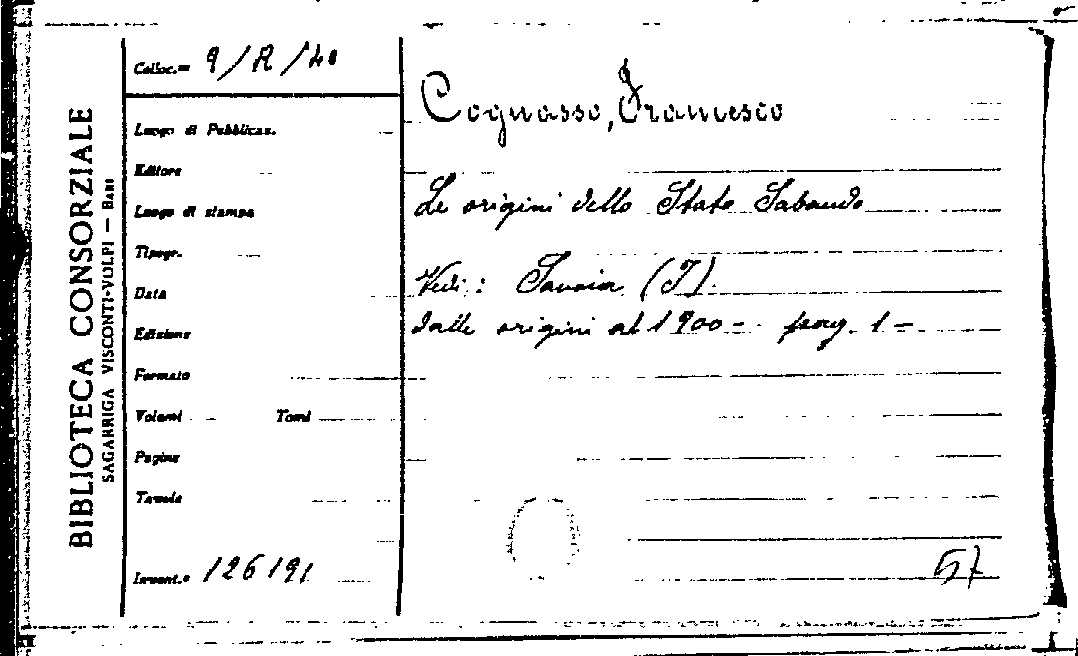 BIBLIOTECA CONSORZIALE
SAGARRIGA VISCONTI-VOLPI — BARI
Colloc.= 9/R/40
Luogo di Pubblicaz.
Editore
Luogo di stampa
Tipogr.
Data
Edizione
Formato
Volumi Tomi
Pagine
Tavole
Invent.° 126191
Cognasso, Francesco
Le origini dello Stato Sabaudo
Vedi: Savoia (I)
dalle origini al 1900 - pag. 1 -
57